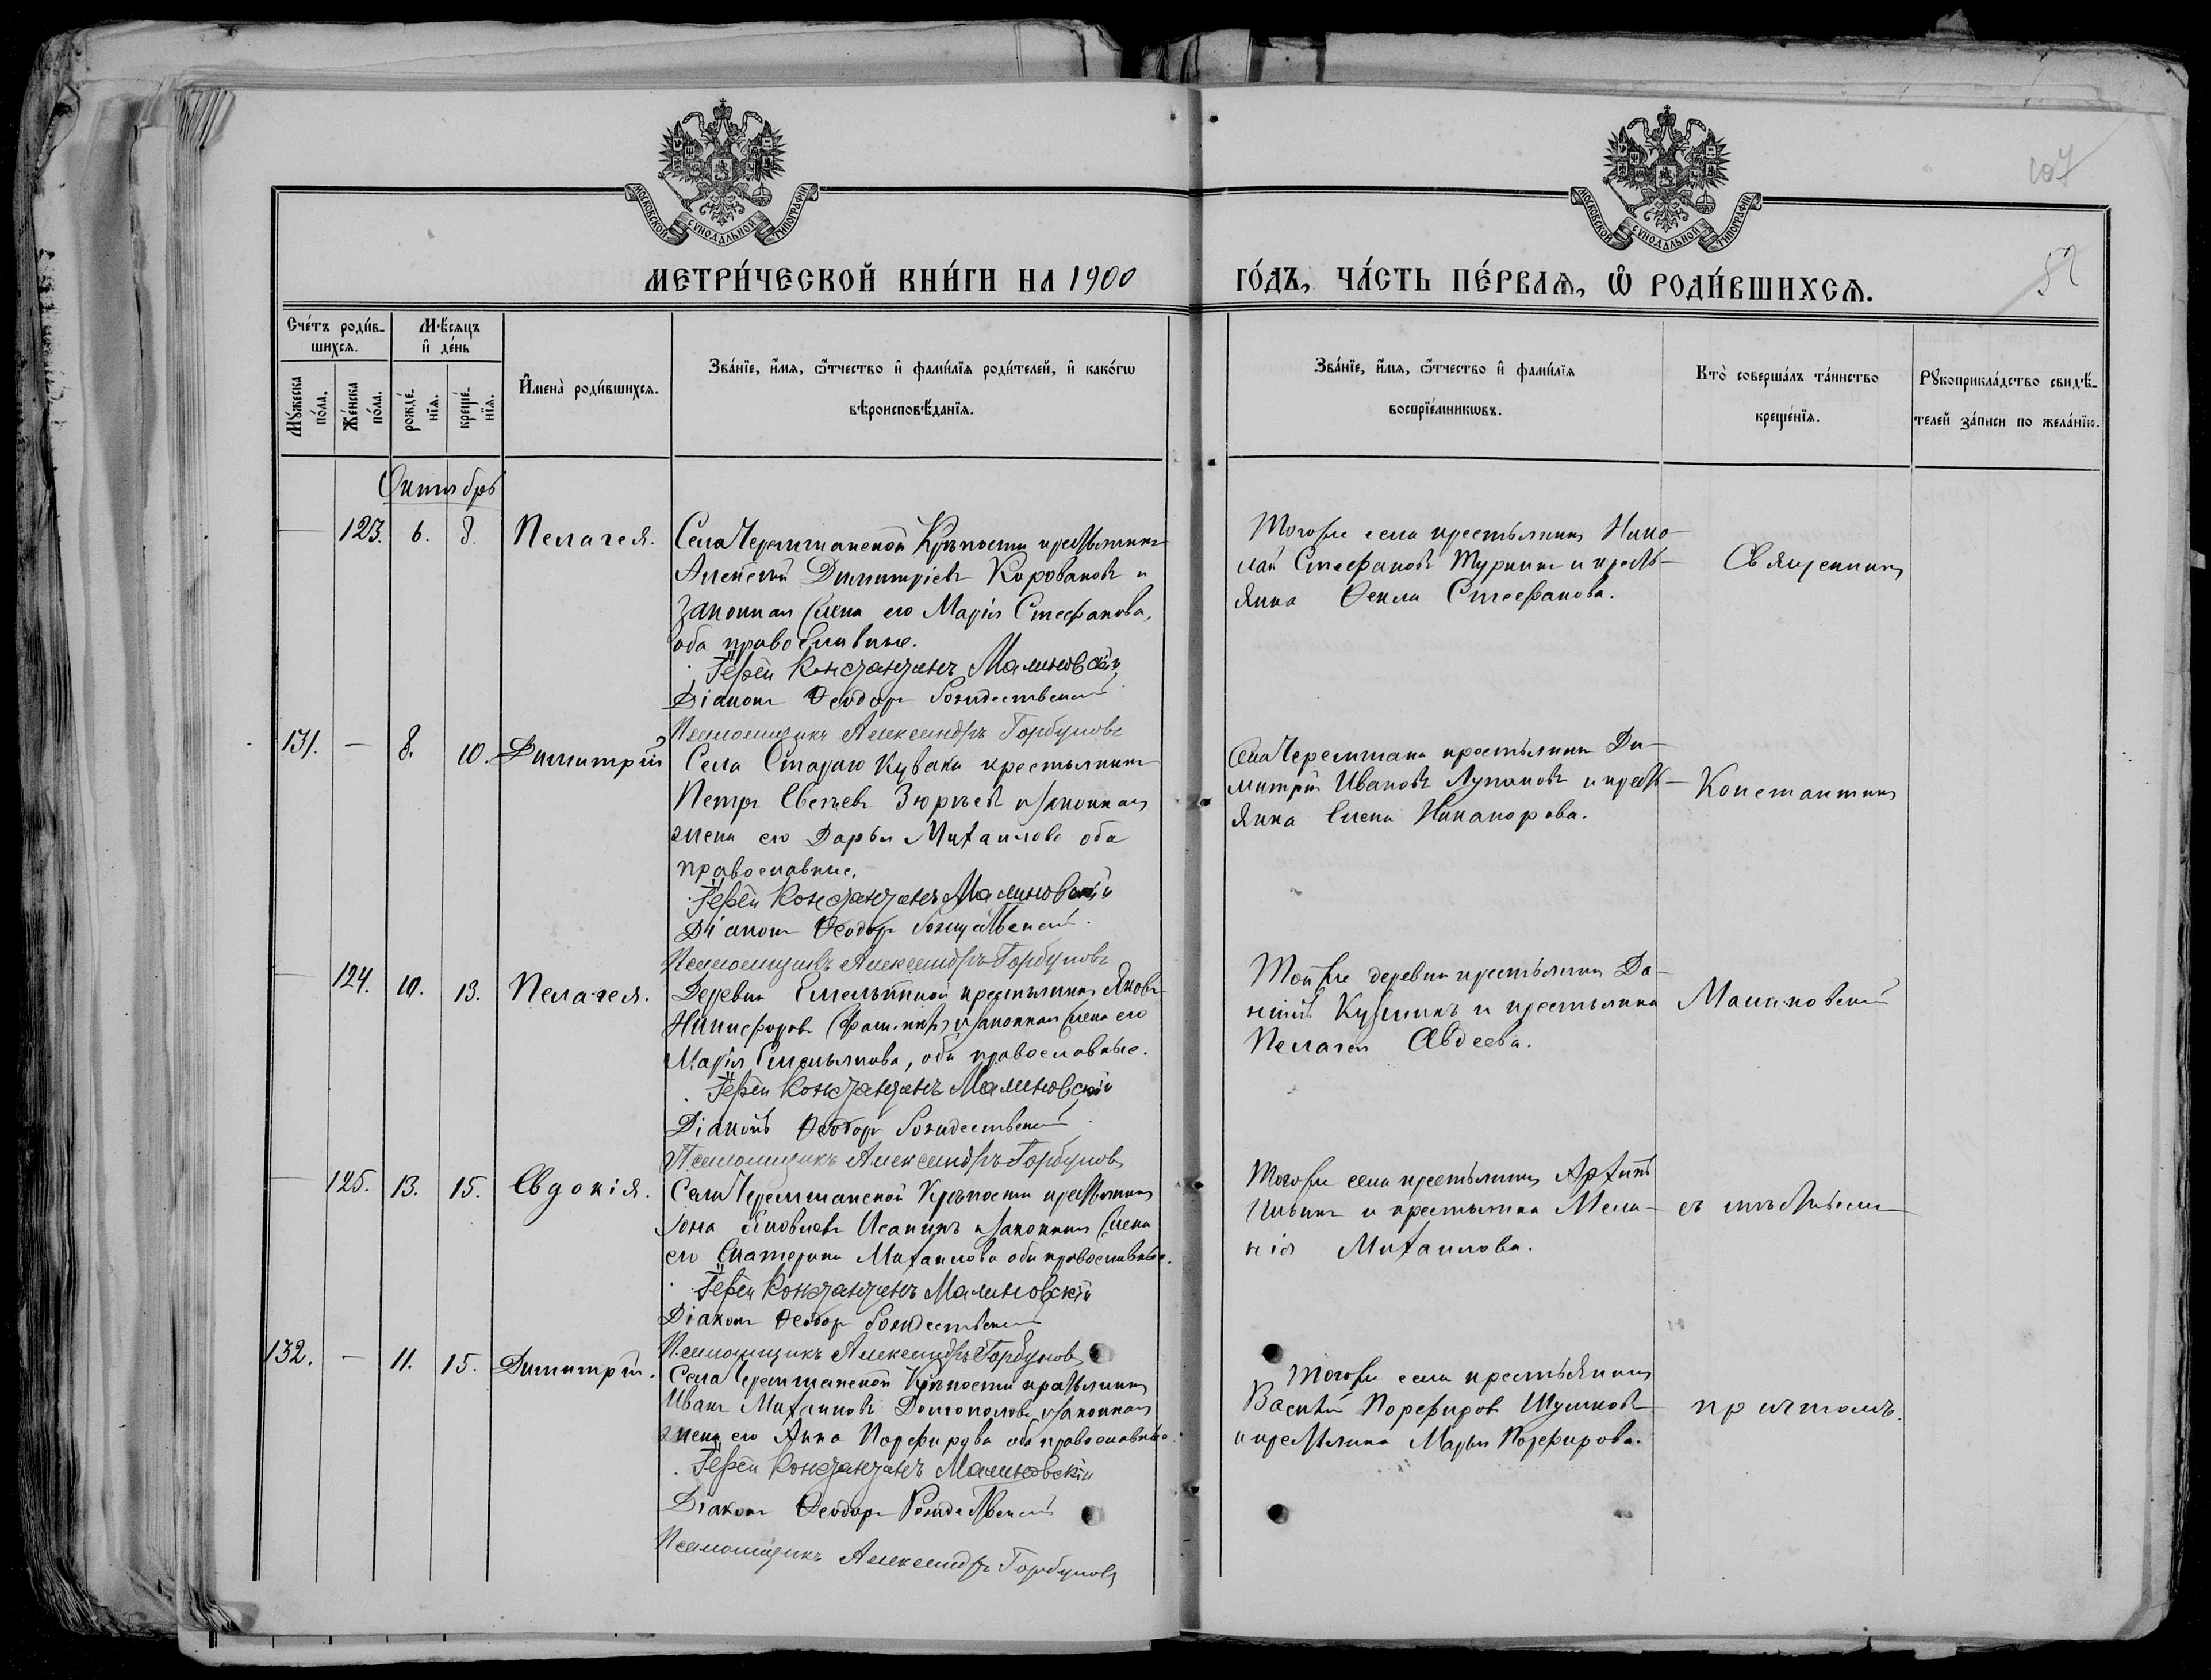 МОСКОВСКОЙ СѴНОДАЛЬНОЙ ТИПОГРАФІИ
МОСКОВСКОЙ СѴНОДАЛЬНОЙ ТИПОГРАФІИ
107
52
МЕТРИ́ЧЕСКОЙ КНИ́ГИ НА 1900
ГО́ДЪ, ЧА́СТЬ ПЕ́РВАѦ, Ѡ҆ РОДИ́ВШИХСѦ.
Сче́тъ роди́в-
шихсѧ.
Мѣ́сяцъ
и҆ де́нь
Мꙋ́жеска по́ла.
Же́нска по́ла.
рожде́-
нїѧ.
креще́-
нїѧ.
И҆мена̀ роди́вшихсѧ.
Зва́нїе, и҆́мѧ, ѻ҆́тчество и҆ фами́лїѧ роди́телей, и҆ како́гѡ
вѣроисповѣ́данїѧ.
Зва́нїе, и҆́мѧ, ѻ҆́тчество и҆ фами́лїѧ
воспрїе́мникѡвъ.
Кто̀ соверша́лъ та́инство
креще́нїѧ.
Рꙋкоприкла́дство свидѣ́-
телей за́писи по жела́нїю.
Октябрь
123. 6. 8. Пелагея.
Села Черемшанской Крѣпости крестьянинъ
Алексѣй Димитріевъ Коровановъ и
законная жена его Марія Стефанова,
оба православные.
Іерей Константинъ Малиновскій
Діаконъ Ѳеодоръ Рождественскій
Псаломщикъ Александръ Горбуновъ
Тогоже села крестьянинъ Нико-
лай Стефановъ Туркинъ и кресть-
янка Ѳекла Стефанова.
Священникъ
131. — 8. 10. Димитрій
Села Стараго Кувака крестьянинъ
Петръ Зюрѣевъ и законная
жена его Дарья Михаилова оба
православные.
Іерей Константинъ Малиновскій
Діаконъ Ѳеодоръ Рождественскій
Псаломщикъ Александръ Горбуновъ
Села Черемшана крестьянинъ Ди-
митрій Ивановъ Лупановъ и кресть-
янка Елена Никанорова.
Константинъ
124. 10. 13. Пелагея.
Деревни Емелькиной крестьянинъ Яковъ
Никифоровъ и законная жена его
Марія Емельянова, оба православные.
Іерей Константинъ Малиновскій
Діаконъ Ѳеодоръ Рождественскій
Псаломщикъ Александръ Горбуновъ
Тойже деревни крестьянинъ Да-
ніилъ и крестьянка
Пелагея Авдеева.
Малиновскій
125. 13. 15. Евдокія.
Села Черемшанской Крѣпости крестьянинъ
Іона Яковлевъ Исакинъ и законная жена
его Екатерина Михаилова оба православные.
Іерей Константинъ Малиновскій
Діаконъ Ѳеодоръ Рождественскій
Псаломщикъ Александръ Горбуновъ
Тогоже села крестьянинъ
и крестьянка Мела-
нія Михаилова.
съ
132. — 11. 15. Димитрій.
Села Черемшанской Крѣпости крестьянинъ
Иванъ Михаиловъ Долгополовъ и законная
жена его Анна Порфирова оба православные.
Іерей Константинъ Малиновскій
Діаконъ Ѳеодоръ Рождественскій
Псаломщикъ Александръ Горбуновъ
Тогоже села крестьянинъ
Василій Порфировъ Шушковъ
и крестьянка Марья Порфирова.
причтомъ.